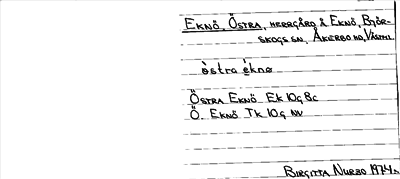 Eknö, Östra, herrgård å Eknö, Björ-
skogs sn, Åkerbo hd, Västml.
östra èknø
Östra Eknö Ek 10g 8c
Ö. Eknö Tk 10g NV
Birgitta Nurbo 1974